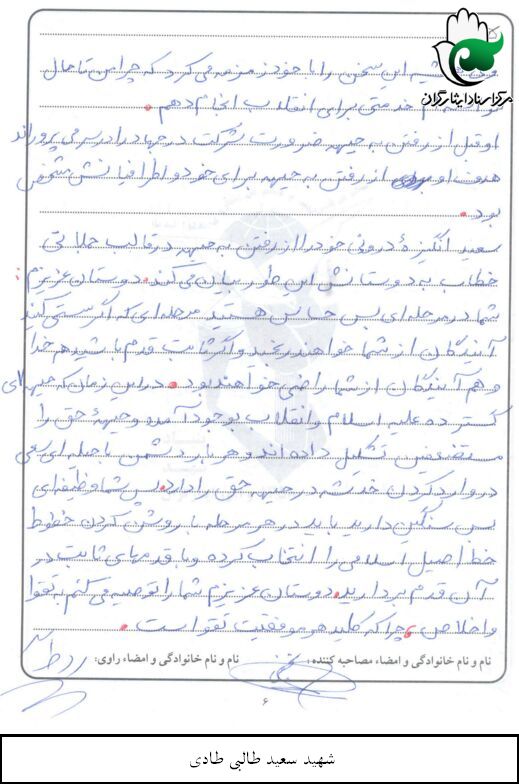 مرکز اسناد ایثارگران
این سخن را با خود زمزمه می کرد که چرا من تا حال
خدمتی برای انقلاب انجام دهم.
او قبل از رفتن به جبهه ضرورت شرکت در جهاد را در سر می پروراند
هدف او از رفتن به جبهه برای خود و اطرافیانش مشخص
بود.
سعید انگیزهٔ درونی خود را از رفتن به جبهه در قالب جملاتی
خطاب به دوستانش این طور بیان می کند. دوستان عزیزم:
شما در مرحله ای بس حساس هستید مرحله ای که اگر سستی کنید
آیندگان از شما خواهند رنجید و اگر ثابت قدم باشید هم خدا
و هم آیندگان از شما راضی خواهند بود. در این زمان که جبهه ای
گسترده علیه اسلام و انقلاب بوجود آمده و جبههٔ حق را
مستضعفین تشکیل داده اند و هر بار دشمن با حیله ای سعی
در وارد کردن خدشه در جبهه حق را دارد. پس شما وظیفه ای
بس سنگین دارید باید در هر مرحله با روشن کردن خطوط
خط اصیل اسلامی را انتخاب کرده و با قدمهای ثابت در
آن قدم بردارید. دوستان عزیزم شما را توصیه می کنم به تقوا
و اخلاص، چرا که کلید هر موفقیت تقوا است.
نام و نام خانوادگی و امضاء مصاحبه کننده: نام و نام خانوادگی و امضاء راوی:
۶
شهید سعید طالبی طادی